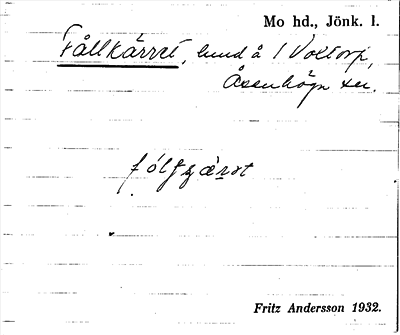 Mo hd., Jönk. l.
Fållkärret, lund å 1 Voxtorp,
Åsenhöga sn.
fólſtʒæ̀rət
Fritz Andersson 1932.